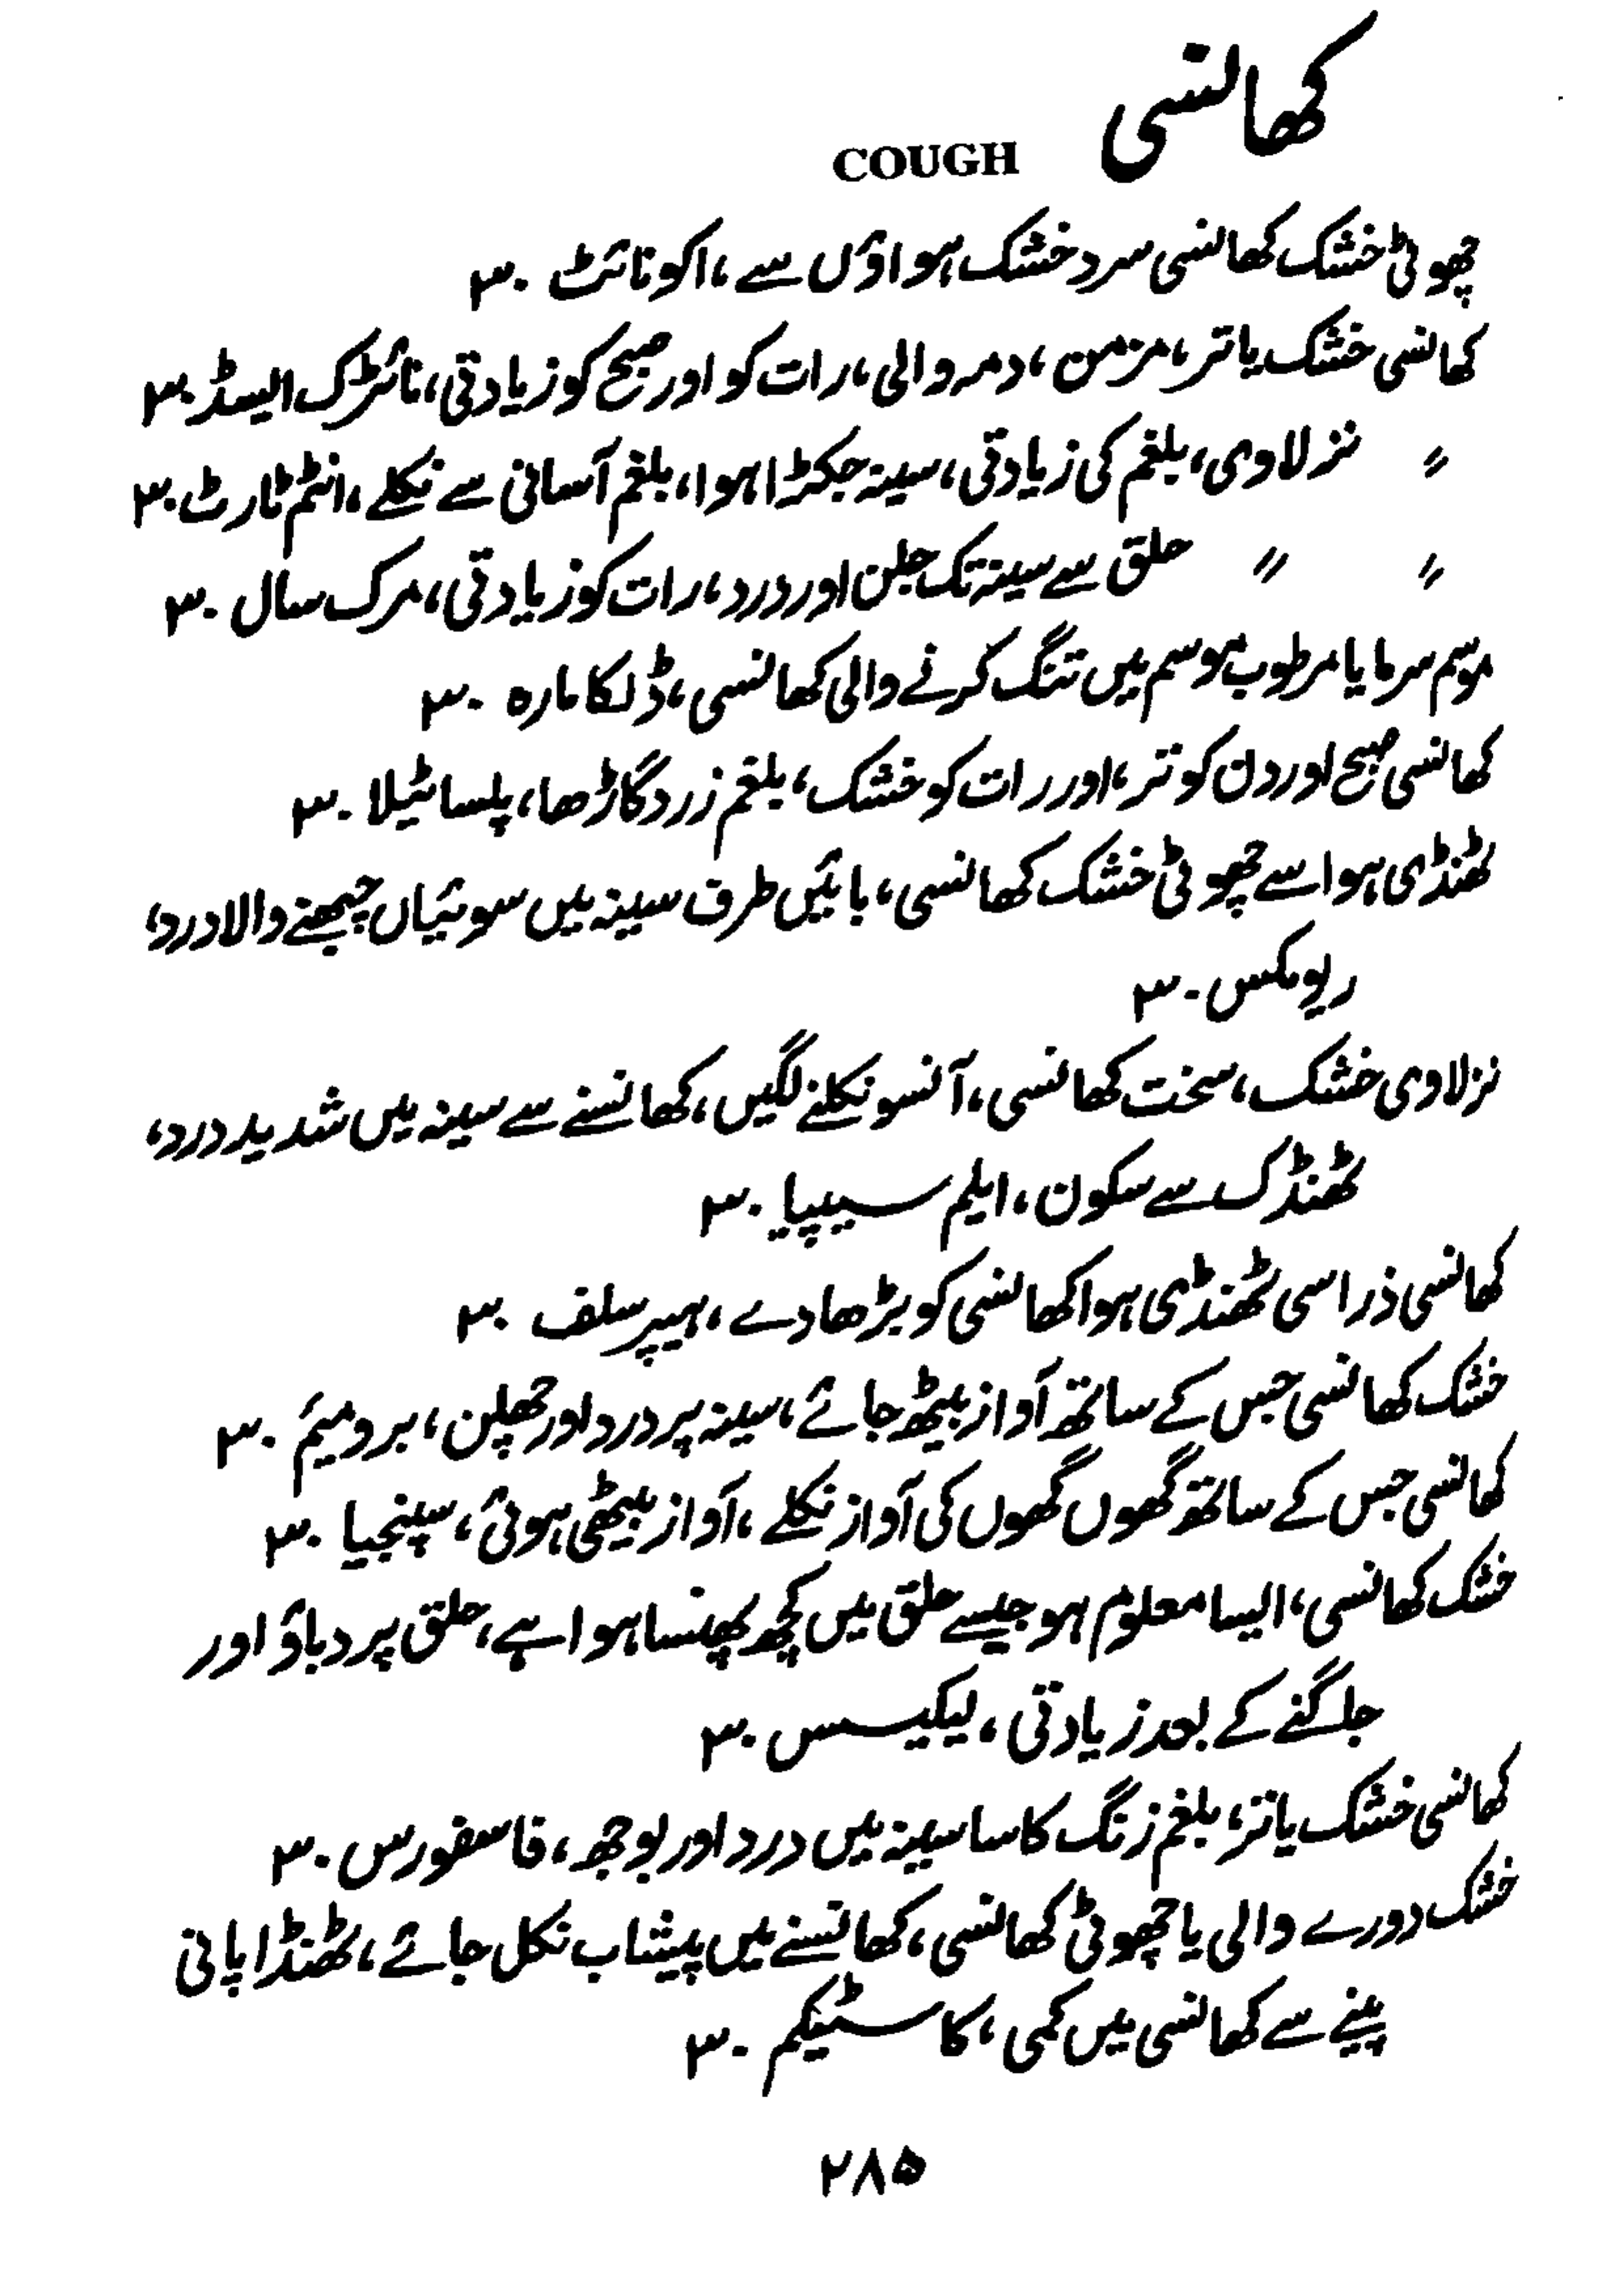 کھانسی
COUGH
چھوٹی خشک کھانسی سرد خشک ہواؤں سے، اکونائٹ ۳۰
کھانسی خشک یا تر، مزمن، دمہ والی، رات کو اور صبح کو زیادتی، نائٹرک ایسڈ ۳۰
〃 نزلاوی، بلغم کی زیادتی، سینہ جکڑا ہوا، بلغم آسانی سے نکلے، انٹم ٹارٹ ۳۰
〃 〃 حلق سے سینہ تک جلن اور درد، رات کو زیادتی، مرک سال ۳۰
موسم سرما یا مرطوب موسم میں تنگ کرنے والی کھانسی، ڈلکامارہ ۳۰
کھانسی صبح اور دن کو تر، اور رات کو خشک، بلغم زرد گاڑھا، پلساٹیلا ۳۰
ٹھنڈی ہوا سے چھوٹی خشک کھانسی، بائیں طرف سینہ میں سوئیاں چبھنے والا درد،
ریومکس ۳۰
نزلاوی خشک، سخت کھانسی، آنسو نکلنے لگیں، کھانسنے سے سینہ میں شدید درد،
ٹھنڈک سے سکون، ایلم سیپیا ۳۰
کھانسی ذرا سی ٹھنڈی ہوا کھانسی کو بڑھا دے، ہیپر سلف ۳۰
خشک کھانسی جس کے ساتھ آواز بیٹھ جائے، سینہ پر درد اور چھلن، برومیئم ۳۰
کھانسی جس کے ساتھ گھوں گھوں کی آواز نکلے، آواز بیٹھی ہوئی، سپنجیا ۳۰
خشک کھانسی، ایسا معلوم ہو جیسے حلق میں کچھ پھنسا ہوا ہے، حلق پر دباؤ اور
جاگنے کے بعد زیادتی، لیکیسس ۳۰
کھانسی خشک یا تر، بلغم زنگ کا سا سینہ میں درد اور بوجھ، فاسفورس ۳۰
خشک دورے والی یا چھوٹی کھانسی، کھانسنے میں پیشاب نکل جائے، ٹھنڈا پانی
پینے سے کھانسی میں کمی، کاسٹیکم ۳۰
۲۸۵